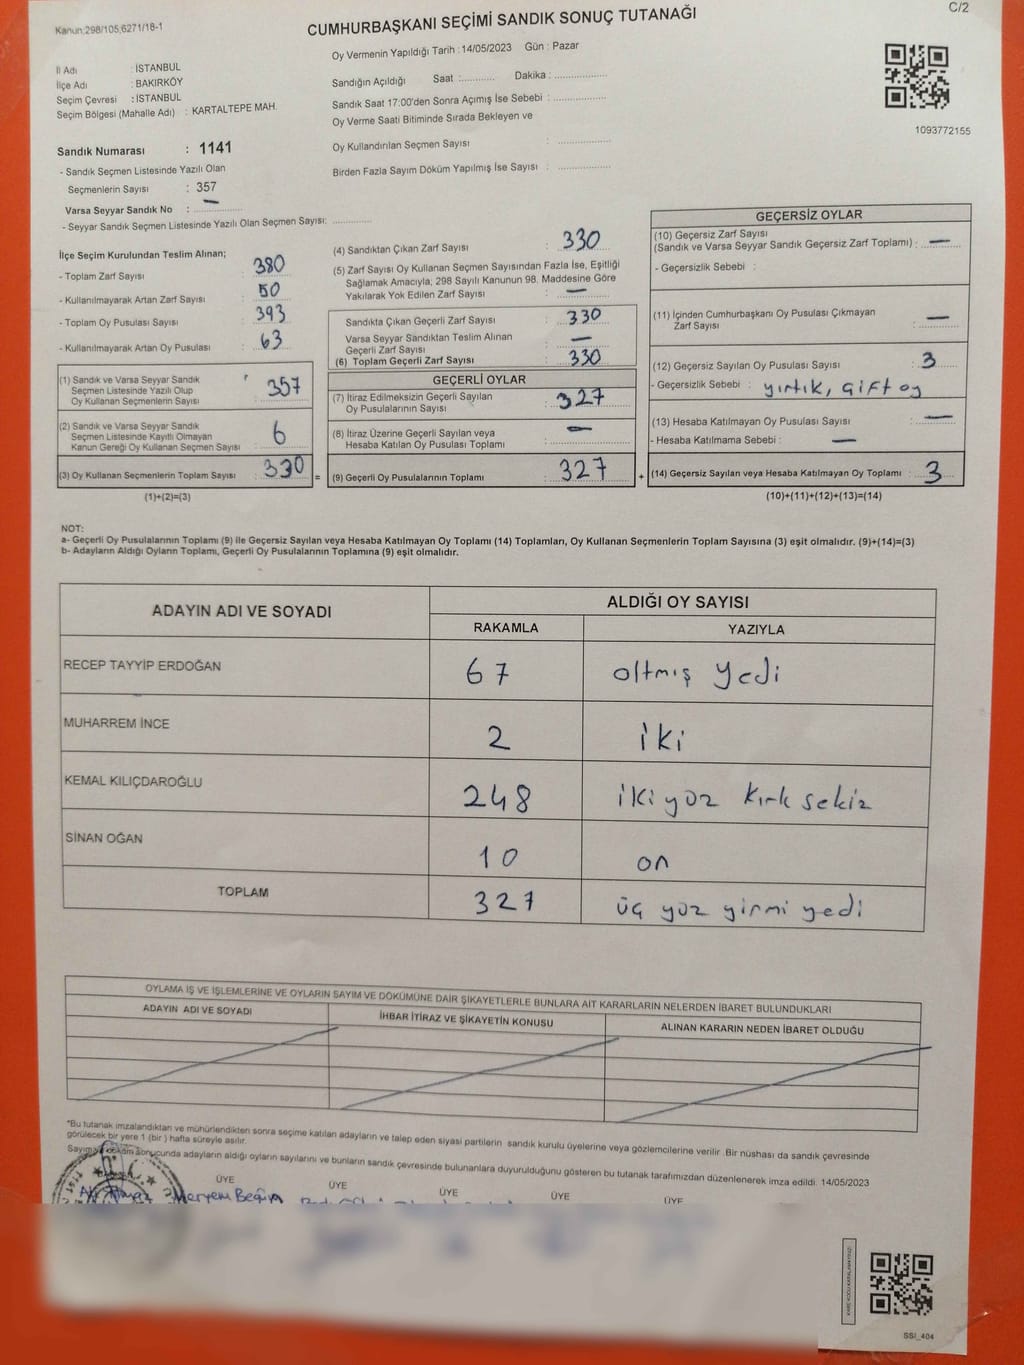 Kanun:298/105,6271/18-1
C/2
CUMHURBAŞKANI SEÇİMİ SANDIK SONUÇ TUTANAĞI
Oy Vermenin Yapıldığı Tarih : 14/05/2023 Gün : Pazar
İl Adı : İSTANBUL
İlçe Adı : BAKIRKÖY
Seçim Çevresi : İSTANBUL
Seçim Bölgesi (Mahalle Adı) : KARTALTEPE MAH.
Sandığın Açıldığı Saat :............ Dakika : ...................
Sandık Saat 17:00'den Sonra Açımış İse Sebebi : ...................
Oy Verme Saati Bitiminde Sırada Bekleyen ve
Oy Kullandırılan Seçmen Sayısı : ...................
Birden Fazla Sayım Döküm Yapılmış İse Sayısı : ...................
1093772155
Sandık Numarası : 1141
- Sandık Seçmen Listesinde Yazılı Olan
Seçmenlerin Sayısı : 357
Varsa Seyyar Sandık No : —
- Seyyar Sandık Seçmen Listesinde Yazılı Olan Seçmen Sayısı: ............
İlçe Seçim Kurulundan Teslim Alınan;
- Toplam Zarf Sayısı : 380
- Kullanılmayarak Artan Zarf Sayısı : 50
- Toplam Oy Pusulası Sayısı : 393
- Kullanılmayarak Artan Oy Pusulası : 63
(1) Sandık ve Varsa Seyyar Sandık
Seçmen Listesinde Yazılı Olup
Oy Kullanan Seçmenlerin Sayısı : 357
(2) Sandık ve Varsa Seyyar Sandık
Seçmen Listesinde Kayıtlı Olmayan
Kanun Gereği Oy Kullanan Seçmen Sayısı : 6
(3) Oy Kullanan Seçmenlerin Toplam Sayısı : 330 =
(1)+(2)=(3)
(4) Sandıktan Çıkan Zarf Sayısı : 330
(5) Zarf Sayısı Oy Kullanan Seçmen Sayısından Fazla İse, Eşitliği
Sağlamak Amacıyla; 298 Sayılı Kanunun 98. Maddesine Göre
Yakılarak Yok Edilen Zarf Sayısı : —
Sandıkta Çıkan Geçerli Zarf Sayısı : 330
Varsa Seyyar Sandıktan Teslim Alınan
Geçerli Zarf Sayısı : —
(6) Toplam Geçerli Zarf Sayısı : 330
GEÇERLİ OYLAR
(7) İtiraz Edilmeksizin Geçerli Sayılan
Oy Pusulalarının Sayısı : 327
(8) İtiraz Üzerine Geçerli Sayılan veya
Hesaba Katılan Oy Pusulası Toplamı : —
(9) Geçerli Oy Pusulalarının Toplamı : 327 +
GEÇERSİZ OYLAR
(10) Geçersiz Zarf Sayısı
(Sandık ve Varsa Seyyar Sandık Geçersiz Zarf Toplamı) : —
- Geçersizlik Sebebi :
(11) İçinden Cumhurbaşkanı Oy Pusulası Çıkmayan
Zarf Sayısı : —
(12) Geçersiz Sayılan Oy Pusulası Sayısı : 3
- Geçersizlik Sebebi : yırtık, çift oy
(13) Hesaba Katılmayan Oy Pusulası Sayısı : —
- Hesaba Katılmama Sebebi : —
(14) Geçersiz Sayılan veya Hesaba Katılmayan Oy Toplamı : 3
(10)+(11)+(12)+(13)=(14)
NOT:
a- Geçerli Oy Pusulalarının Toplamı (9) ile Geçersiz Sayılan veya Hesaba Katılmayan Oy Toplamı (14) Toplamları, Oy Kullanan Seçmenlerin Toplam Sayısına (3) eşit olmalıdır. (9)+(14)=(3)
b- Adayların Aldığı Oyların Toplamı, Geçerli Oy Pusulalarının Toplamına (9) eşit olmalıdır.
ADAYIN ADI VE SOYADI
ALDIĞI OY SAYISI
RAKAMLA YAZIYLA
RECEP TAYYİP ERDOĞAN 67 altmış yedi
MUHARREM İNCE 2 iki
KEMAL KILIÇDAROĞLU 248 iki yüz kırk sekiz
SİNAN OĞAN 10 on
TOPLAM 327 üç yüz yirmi yedi
OYLAMA İŞ VE İŞLEMLERİNE VE OYLARIN SAYIM VE DÖKÜMÜNE DAİR ŞİKAYETLERLE BUNLARA AİT KARARLARIN NELERDEN İBARET BULUNDUKLARI
ADAYIN ADI VE SOYADI İHBAR İTİRAZ VE ŞİKAYETİN KONUSU ALINAN KARARIN NEDEN İBARET OLDUĞU
*Bu tutanak imzalandıktan ve mühürlendikten sonra seçime katılan adayların ve talep eden siyasi partilerin sandık kurulu üyelerine veya gözlemcilerine verilir. Bir nüshası da sandık çevresinde
görülecek bir yere 1 (bir ) hafta süreyle asılır.
Sayım ve döküm sonucunda adayların aldığı oyların sayılarını ve bunların sandık çevresinde bulunanlara duyurulduğunu gösteren bu tutanak tarafımızdan düzenlenerek imza edildi. 14/05/2023
ÜYE ÜYE ÜYE ÜYE ÜYE
Meryem
SSİ_404